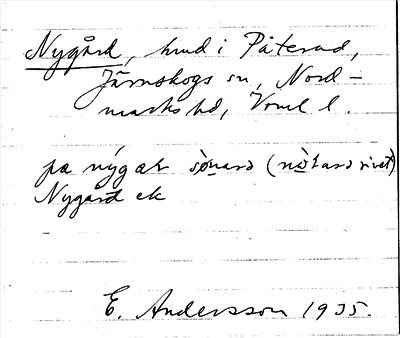 Nygård, hmd i Påterud,
Järnskogs sn, Nord-
marks hd, Vrml l.
pa nýgæt sònard (nòtard rivet)
Nygård ek
E. Andersson 1935.